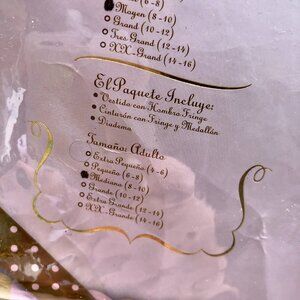 (6-8)
Moyen (8-10)
Grand (10-12)
Tres Grand (12-14)
XX-Grand (14-16)
El Paquete Incluye:
Vestido con Hombro Fringe
Cinturón con Fringe y Medallón
Diadema
Tamaño: Adulto
Extra Pequeño (4-6)
Pequeño (6-8)
Mediano (8-10)
Grande (10-12)
Extra Grande (12-14)
XX-Grande (14-16)